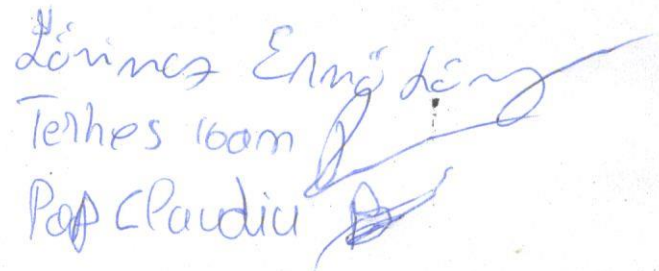 Lőrincz Ernő
Terhes Ioan
Pop Claudiu